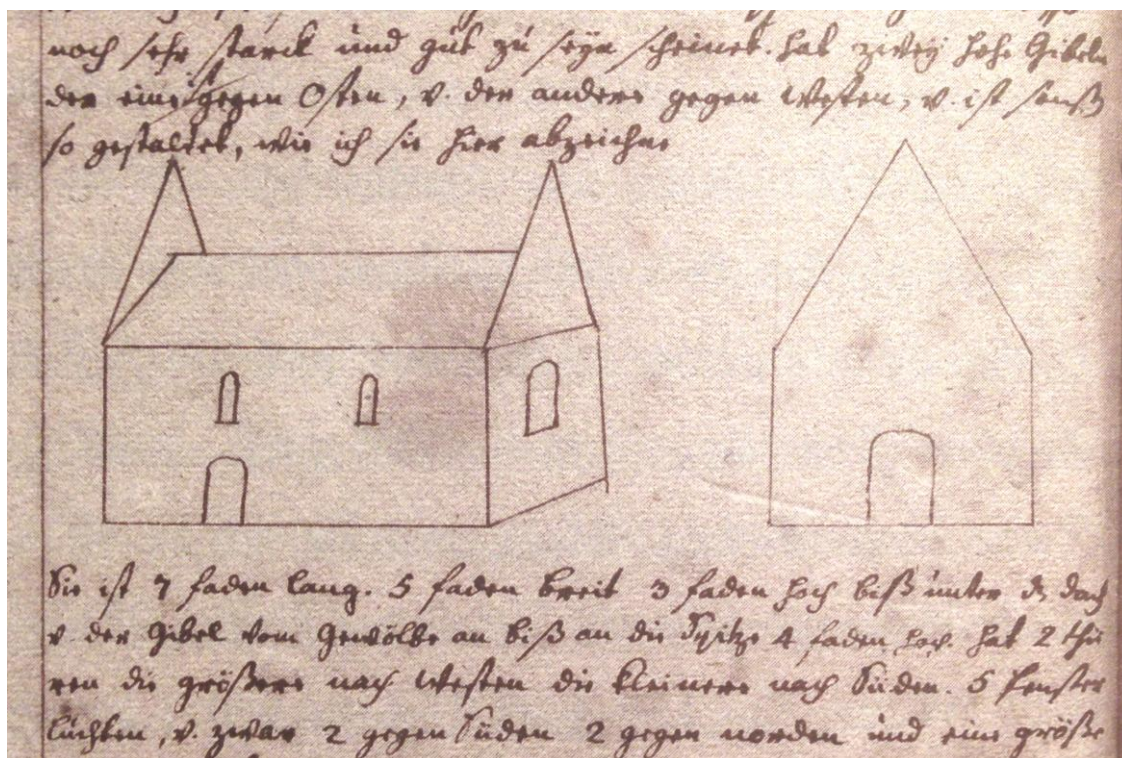 noch sehr starck und gut zu seyn scheinet. hat zweÿ hohe Gibeln
der eine ist gegen Osten, v. der andere gegen Westen, v. ist sonst
so gestaltet, wie ich sie hier abzeichne
Sie ist 7 faden lang. 5 faden breit 3 faden hoch biß unter dz dach
v. der Gibel vom Gewölbe an biß an die Spitze 4 faden hoch. hat 2 thü
ren die größere nach Westen die kleinere nach Süden. 5 fenster
lüchten, v. zwar 2 gegen Süden 2 gegen norden und eine größe